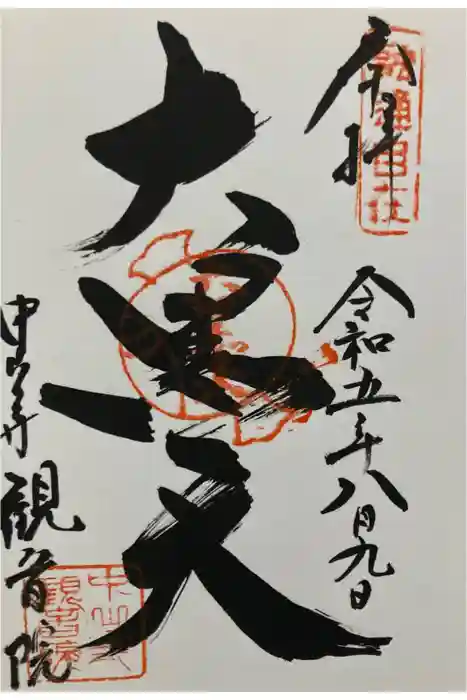 奉拝
融通自在
令和五年八月九日
大黒天
中山寺 観音院
中山寺
観音院